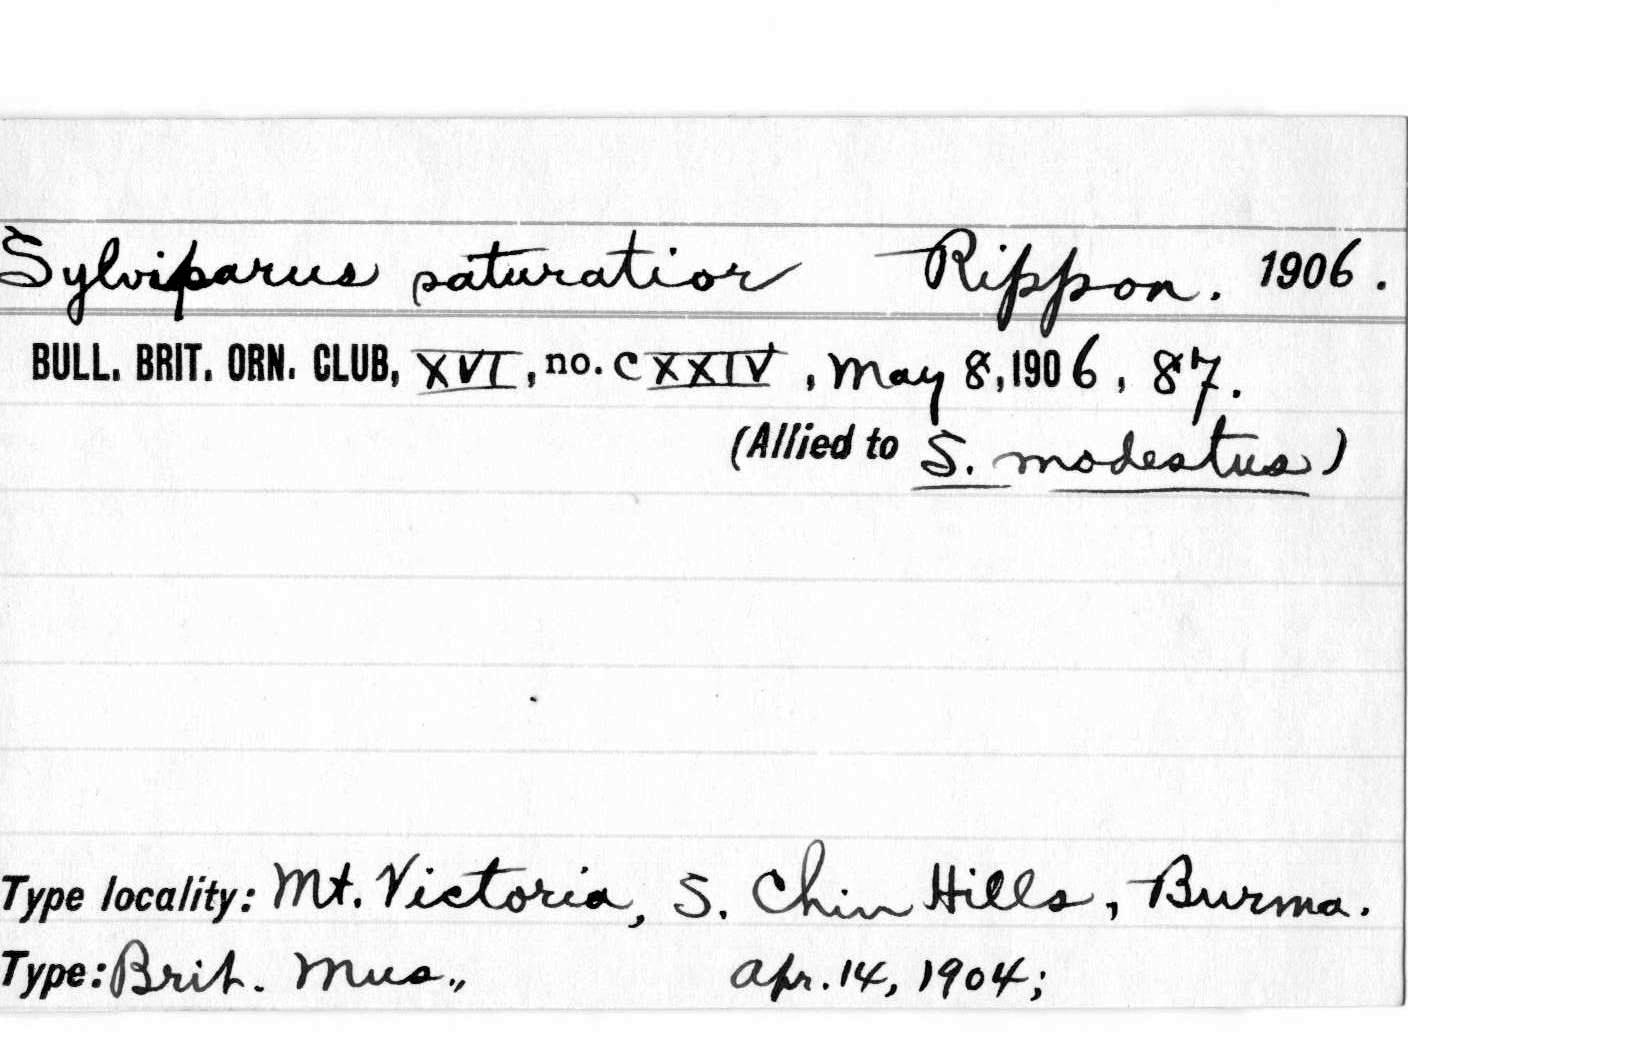 Sylviparus saturatior Rippon. 1906.
BULL. BRIT. ORN. CLUB, XVI, no. CXXIV, May 8, 1906, 87.
(Allied to S. modestus)
Type locality: Mt. Victoria, S. Chin Hills, Burma.
Type: Brit. Mus., Apr. 14, 1904;